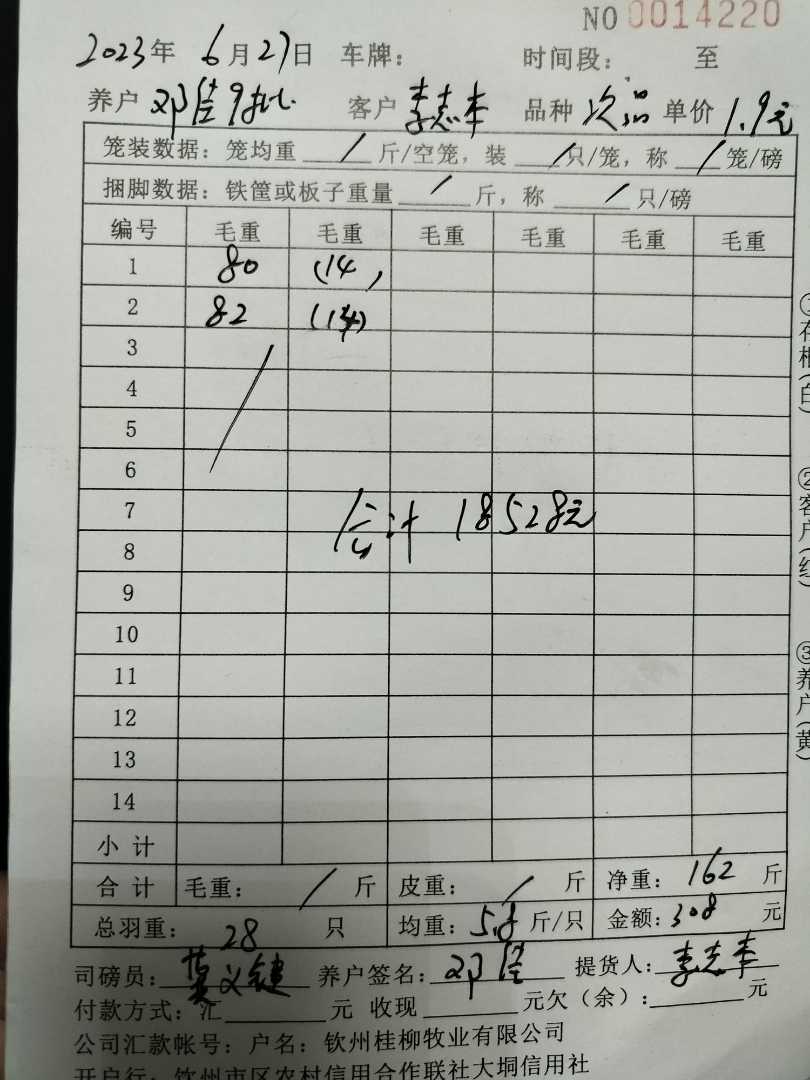 NO 0014220
2023年 6月27日 车牌： 时间段： 至
养户 邓 客户 李志丰 品种 次品 单价 1.9元
笼装数据：笼均重 / 斤/空笼，装 / 只/笼，称 / 笼/磅
捆脚数据：铁筐或板子重量 / 斤，称 / 只/磅
编号 毛重 毛重 毛重 毛重 毛重 毛重
1 80 (14)
2 82 (14)
3
4
5
6
7 合计 18528元
8
9
10
11
12
13
14
小 计
合 计 毛重： / 斤 皮重： / 斤 净重： 162 斤
总羽重： 28 只 均重： 5.8 斤/只 金额： 308 元
司磅员： 莫义键 养户签名： 邓 提货人： 李志丰
付款方式：汇 元 收现 元欠（余）： 元
公司汇款帐号：户名：钦州桂柳牧业有限公司
开户行：钦州市区农村信用合作联社大垌信用社
②客户（红）
③养户（黄）